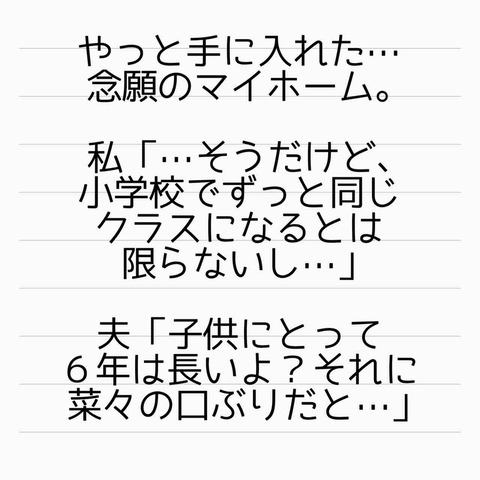 やっと手に入れた…
念願のマイホーム。
私「…そうだけど、
小学校でずっと同じ
クラスになるとは
限らないし…」
夫「子供にとって
６年は長いよ？それに
菜々の口ぶりだと…」